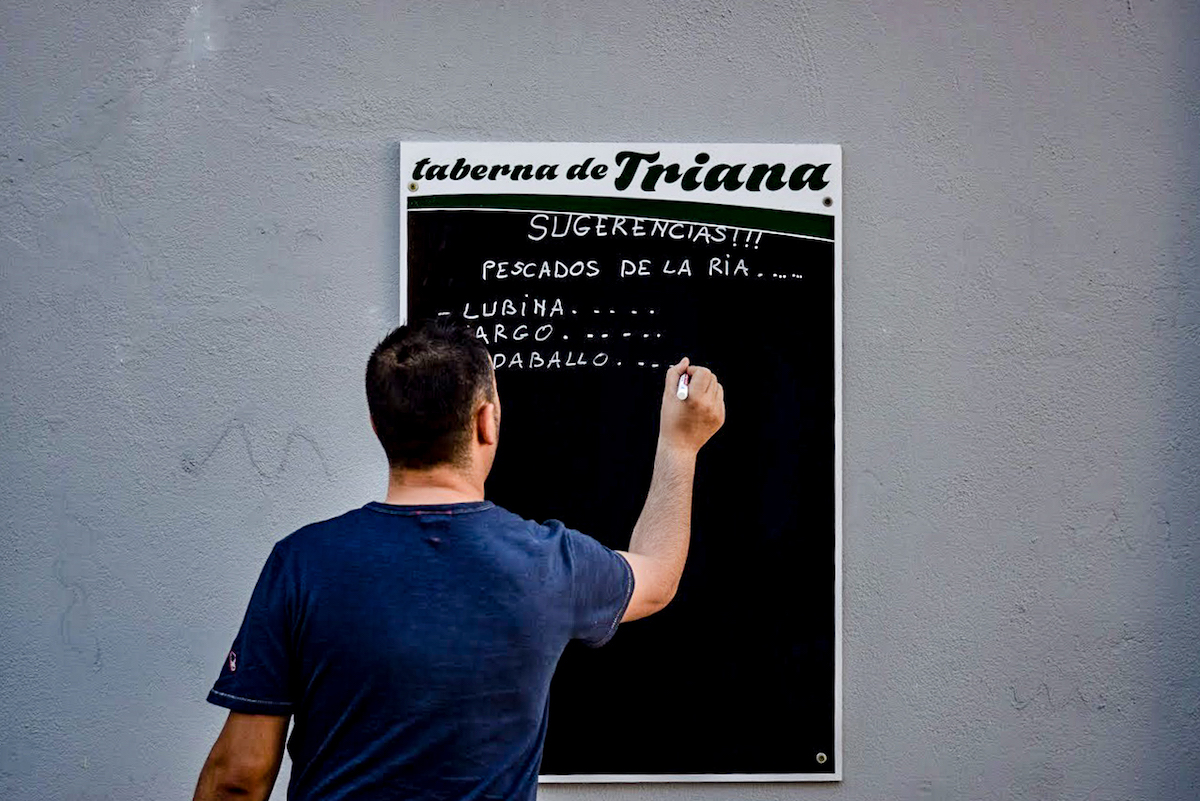 taberna de Triana
SUGERENCIAS!!!
PESCADOS DE LA RIA......
- LUBINA.....
ARGO......
DABALLO....